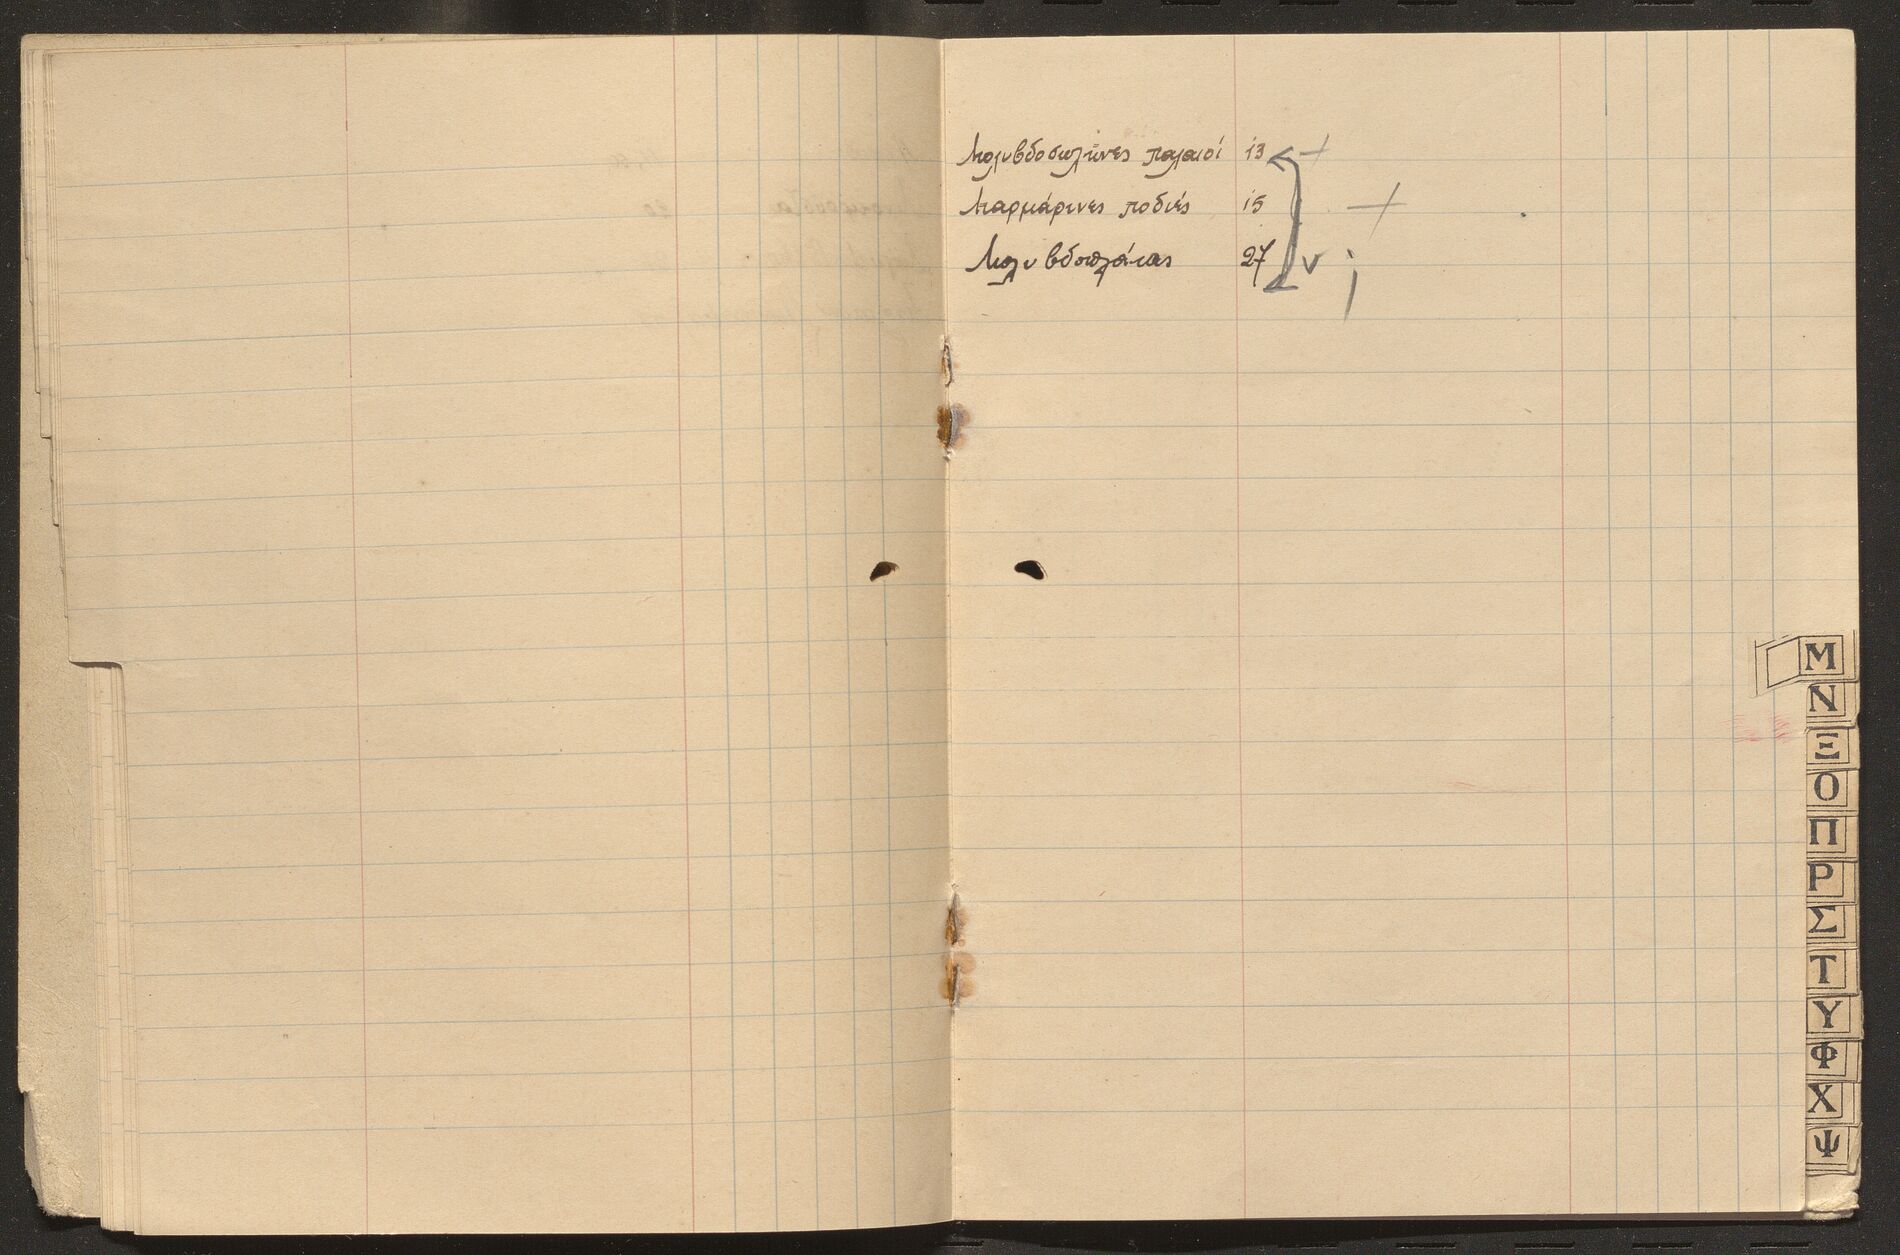 Μολυβδοσωλῆνες παλαιοί 13
Μαρμάρινες ποδιές 15
Μολυβδοπλάκας 27
Μ
Ν
Ξ
Ο
Π
Ρ
Σ
Τ
Υ
Φ
Χ
Ψ